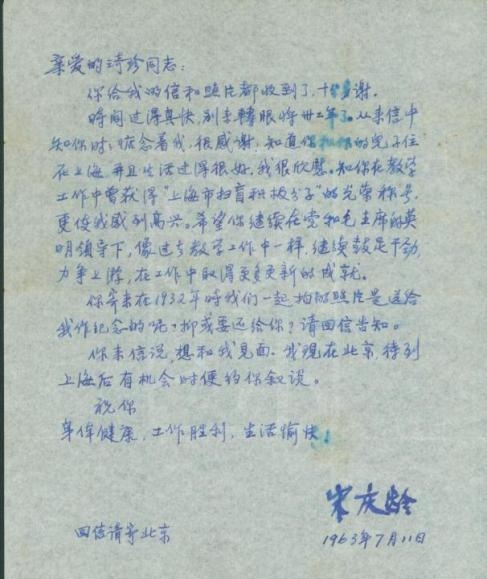 亲爱的琦珍同志：
你给我的信和照片都收到了，十分感谢。
时间过得真快，别来转眼将卅二年了。从来信中
知你时时惦念着我，很感谢，知道你和你的儿子住
在上海，并且生活过得很好，我很欣慰。知你在教学
工作中曾获得“上海市扫盲积极分子”的光荣称号，
更使我感到高兴。希望你继续在党和毛主席的英
明领导下，像过去教学工作中一样，继续鼓足干劲
力争上游，在工作中取得更多更新的成就。
你寄来在1932年时我们一起拍的照片是送给
我作纪念的呢？抑或要还给你？请回信告知。
你来信说，想和我见面，我现在北京，待到
上海后有机会时便约你叙谈。
祝你
身体健康，工作胜利，生活愉快！
宋庆龄
回信请寄北京
1963年7月11日